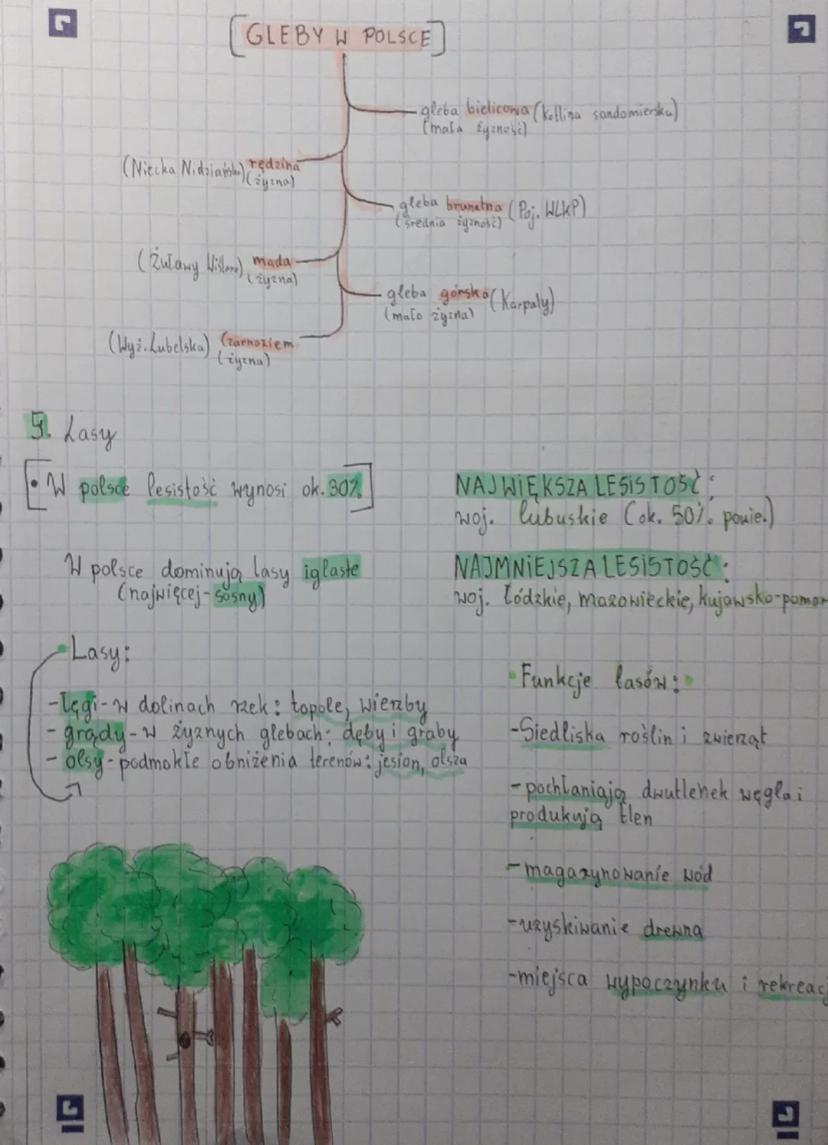 [GLEBY W POLSCE]
gleba bielicowa (kotlina sandomierska)
(mała żyzność)
(Niecka Nidziańska) rędzina
(żyzna)
gleba brunatna (Poj. WLKP)
(średnia żyzność)
(Żuławy Wiślane) mada
(żyzna)
gleba górska (Karpaty)
(mało żyzna)
(Wyż. Lubelska) Czarnoziem
(żyzna)
Lasy
• W polsce lesistość wynosi ok. 30%
W polsce dominują lasy iglaste
(najwięcej - sosny)
NAJWIĘKSZA LESISTOŚĆ:
woj. lubuskie (ok. 50% powie.)
NAJMNIEJSZA LESISTOŚĆ:
woj. łódzkie, mazowieckie, kujawsko-pomor
• Lasy:
- łęgi - w dolinach rzek: topole, wierzby
- grądy - w żyznych glebach: dęby i graby
- olsy - podmokłe obniżenia terenów: jesion, olsza
• Funkcje lasów: •
- Siedliska roślin i zwierząt
- pochłaniają dwutlenek węgla i
produkują tlen
- magazynowanie wód
- uzyskiwanie drewna
- miejsca wypoczynku i rekreacj